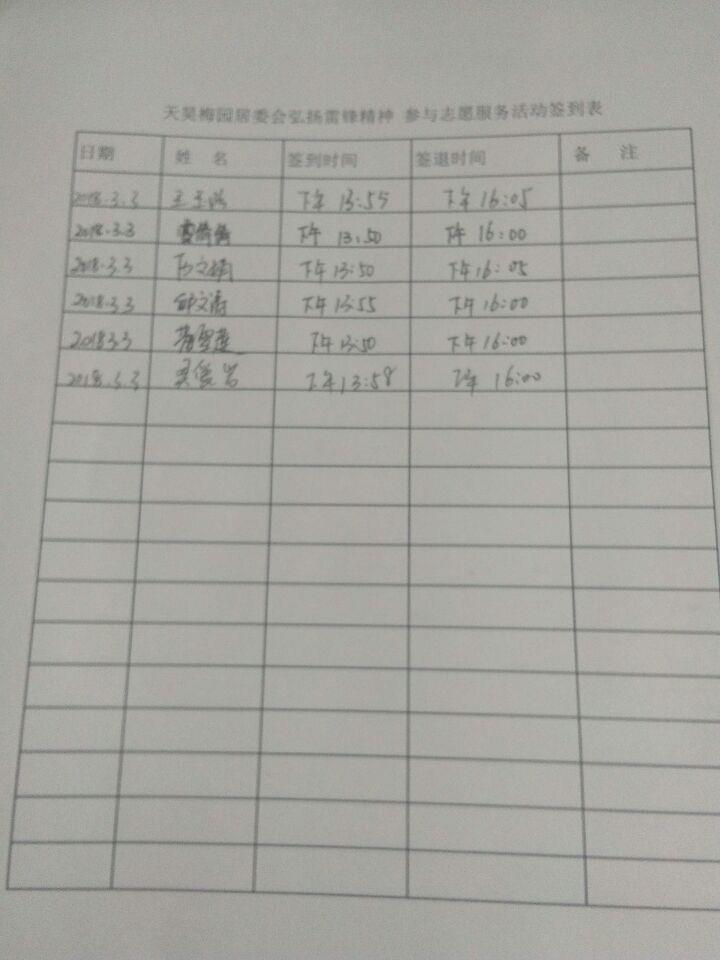 天昊梅园居委会弘扬雷锋精神 参与志愿服务活动签到表
日期 姓 名 签到时间 签退时间 备 注
2018.3.3 下午 13:55 下午 16:05
2018.3.3 下午 13:50 下午 16:00
2018.3.3 下午 13:50 下午 16:05
2018.3.3 下午 13:55 下午 16:00
2018.3.3 下午 13:50 下午 16:00
2018.3.3 吴俊岩 下午 13:58 下午 16:00